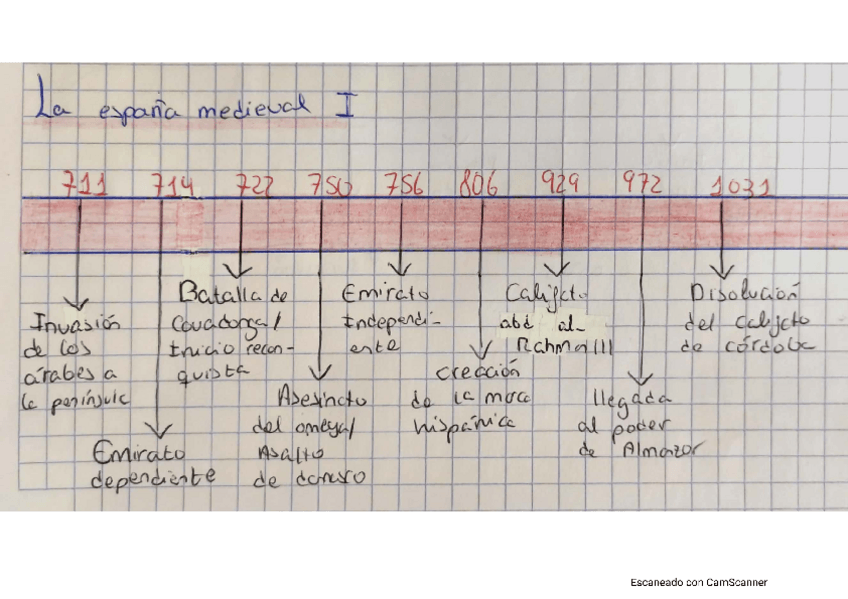 La españa medieval I
711 714 722 750 756 806 929 972 1031
Invasión
de los
árabes a
la península
Emirato
dependiente
Batalla de
Covadonga/
Inicio recon-
quista
Asesinato
del omeya/
Asalto
de
Emirato
Independi-
ente
creación
de la marca
hispánica
Califato
abd al-
Rahman III
llegada
al poder
de Almanzor
Disolución
del califato
de córdoba
Escaneado con CamScanner